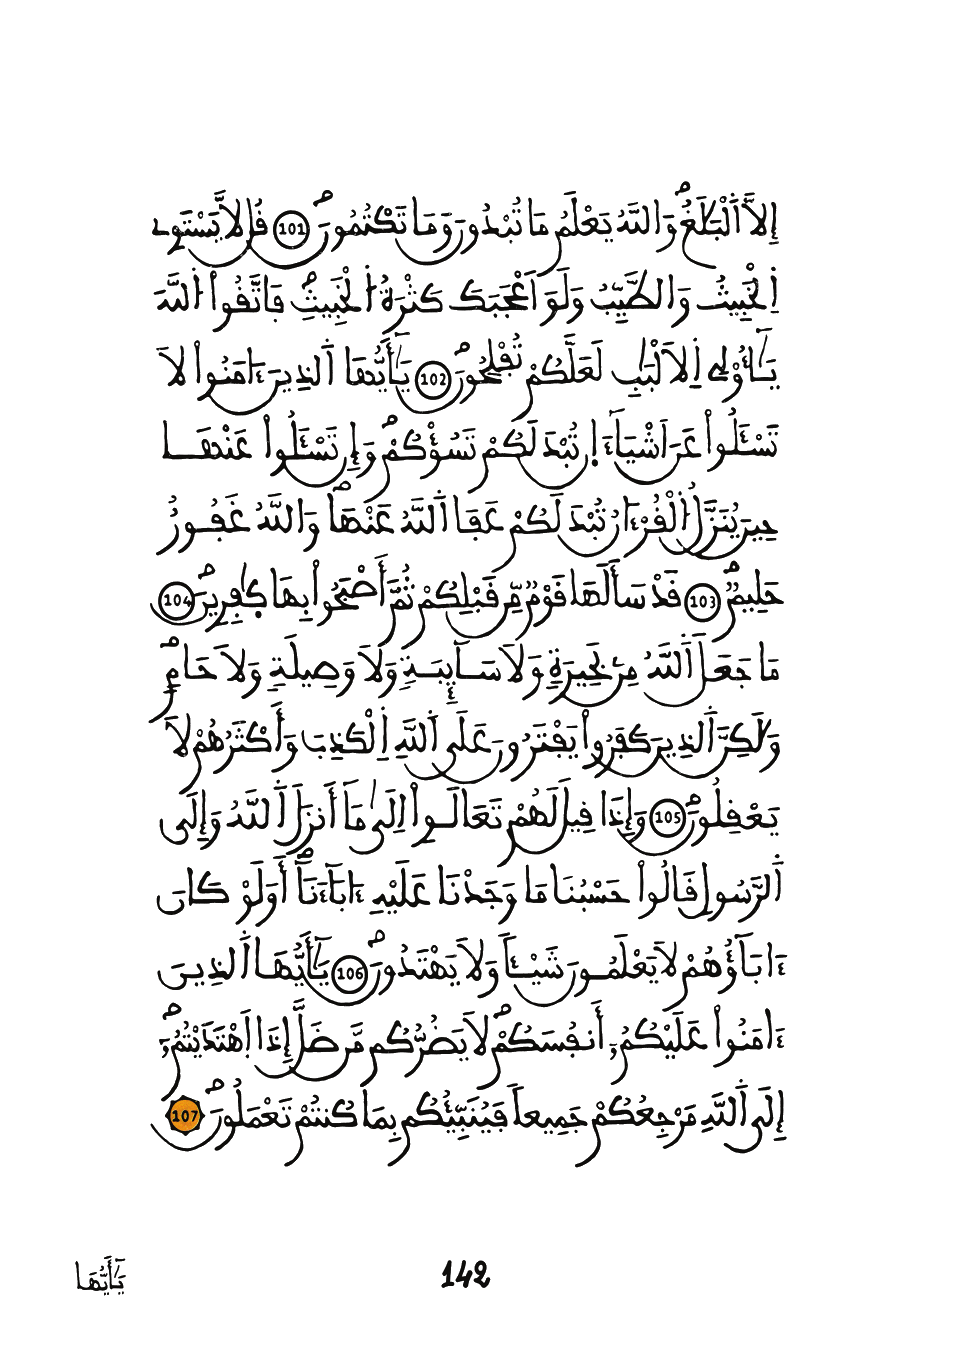 إِلاَّ اَ۬لْبَلَٰغُۖ وَاللَّهُ يَعْلَمُ مَا تُبْدُونَ وَمَا تَكْتُمُونَۖ 101 قُل لاَّ يَسْتَوِے
اِ۬لْخَبِيثُ وَالطَّيِّبُ وَلَوَ اَعْجَبَكَ كَثْرَةُ اُ۬لْخَبِيثِۖ فَاتَّقُواْ اُ۬للَّهَ
يَٰٓأُوْلِے اِ۬لاَلْبَٰبِ لَعَلَّكُمْ تُفْلِحُونَۖ 102 يَٰٓأَيُّهَا اَ۬لذِينَ ءَامَنُواْ لاَ
تَسْـَٔلُواْ عَنَ اَشْيَآءَ اِ۪ن تُبْدَ لَكُمْ تَسُؤْكُمْۖ وَإِن تَسْـَٔلُواْ عَنْهَا
حِينَ يُنَزَّلُ اُ۬لْقُرْءَانُ تُبْدَ لَكُمْ عَفَا اَ۬للَّهُ عَنْهَاۖ وَاللَّهُ غَفُورٌ
حَلِيمٞۖ 103 قَدْ سَأَلَهَا قَوْمٞ مِّن قَبْلِكُمْ ثُمَّ أَصْبَحُواْ بِهَا كٰ۪فِرِينَۖ 104
مَا جَعَلَ اَ۬للَّهُ مِنۢ بَحِيرَةٖ وَلاَ سَآئِبَةٖ وَلاَ وَصِيلَةٖ وَلاَ حَامٖۖ
وَلَٰكِنَّ اَ۬لذِينَ كَفَرُواْ يَفْتَرُونَ عَلَي اَ۬للَّهِ اِ۬لْكَذِبَ وَأَكْثَرُهُمْ لاَ
يَعْقِلُونَۖ 105 وَإِذَا قِيلَ لَهُمْ تَعَالَوِاْ اِلَيٰ مَآ أَنزَلَ اَ۬للَّهُ وَإِلَي
اَ۬لرَّسُولِ قَالُواْ حَسْبُنَا مَا وَجَدْنَا عَلَيْهِ ءَابَآءَنَآۖ أَوَلَوْ كَانَ
ءَابَآؤُهُمْ لاَ يَعْلَمُونَ شَيْـٔاٗ وَلاَ يَهْتَدُونَۖ 106 يَٰٓأَيُّهَا اَ۬لذِينَ
ءَامَنُواْ عَلَيْكُمُۥٓ أَنفُسَكُمْۖ لاَ يَضُرُّكُم مَّن ضَلَّ إِذَا اَ۪هْتَدَيْتُمُۥٓۖ
إِلَي اَ۬للَّهِ مَرْجِعُكُمْ جَمِيعاٗ فَيُنَبِّئُكُم بِمَا كُنتُمْ تَعْمَلُونَۖ 107
يَٰٓأَيُّهَا
142